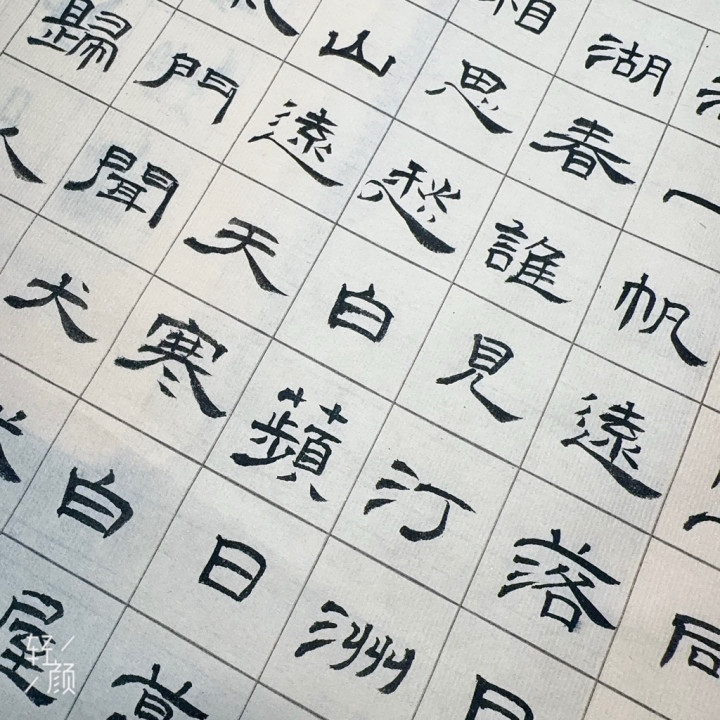 一帆遠落日
湖春誰見汀洲
湘思愁白蘋日
山遠天寒白屋
門聞犬
歸人
轻颜